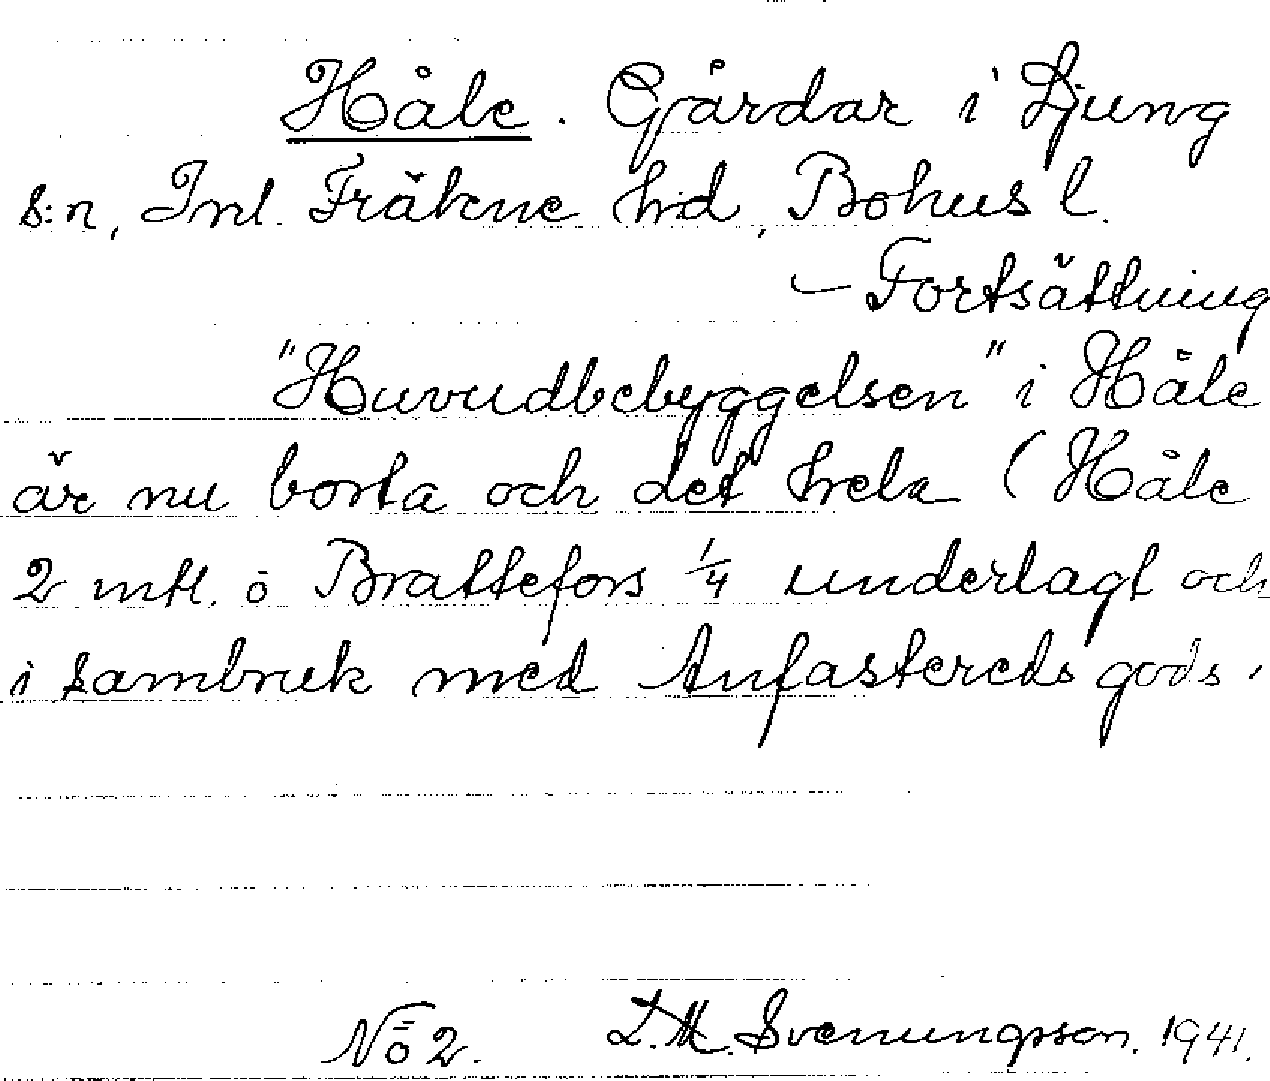 Håle. Gårdar i Ljung
s:n, Inl. Fräkne hd, Bohus l.
— Fortsättning
"Huvudbebyggelsen" i Håle
är nu borta och det hela (Håle
2 mtl. o Brattefors 1/4 underlagt och
i sambruk med Anfastereds gods.
No 2. L.M. Svenungsson. 1941.